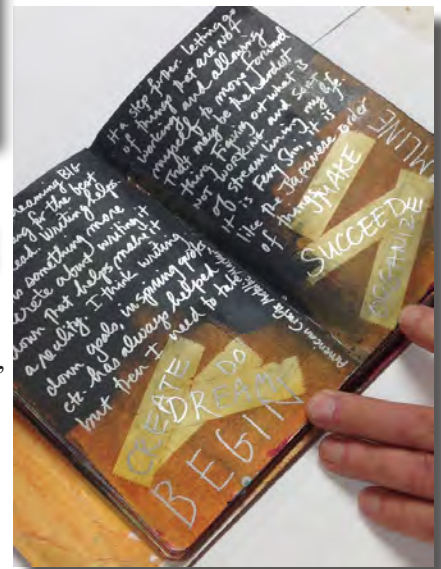 reaming BIG
ng for the best
ead. Writing helps
something more
crete about writing it
down that helps make it
a reality. I think writing
down goals, inspiring quotes
etc has always helped
but then I need to take
CREATE
DO
DREAM
BEGIN
it a step further. letting go
of things that are not
working and allowing
myself to move forward
That may be the hardest
thing. Figuring out what is
NOT WORKING and sort
of streamlining my life.
It is Feng Shui, it is
like the Japanese order
of things
MAKE
SUCCEEDE
ORGANIZE
MLINE
American Craft Metallic